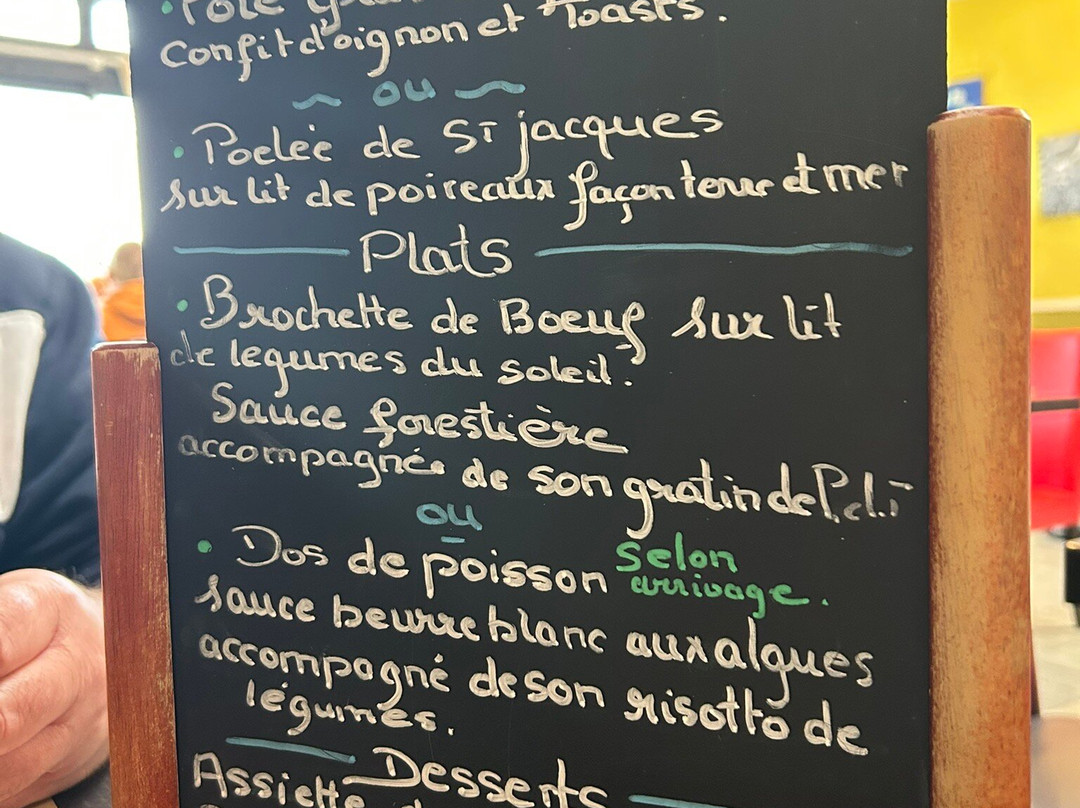 Confit d'oignon et Toasts.
~ ou ~
• Poelée de St jacques
sur lit de poireaux façon terre et mer
Plats
• Brochette de Boeuf sur lit
de legumes du soleil.
Sauce forestière
accompagnée de son gratin de
ou
• Dos de poisson selon
arrivage.
sauce beurre blanc aux algues
accompagné de son risotto de
légumes.
Desserts
Assiette